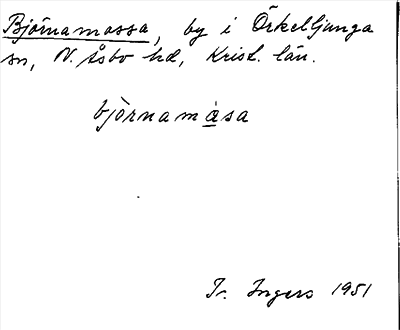 Björnamossa, by i Örkelljunga
sn, N. Åsbo hd, Krist. län.
bjòrnamåsa
Ir. Ingers 1951